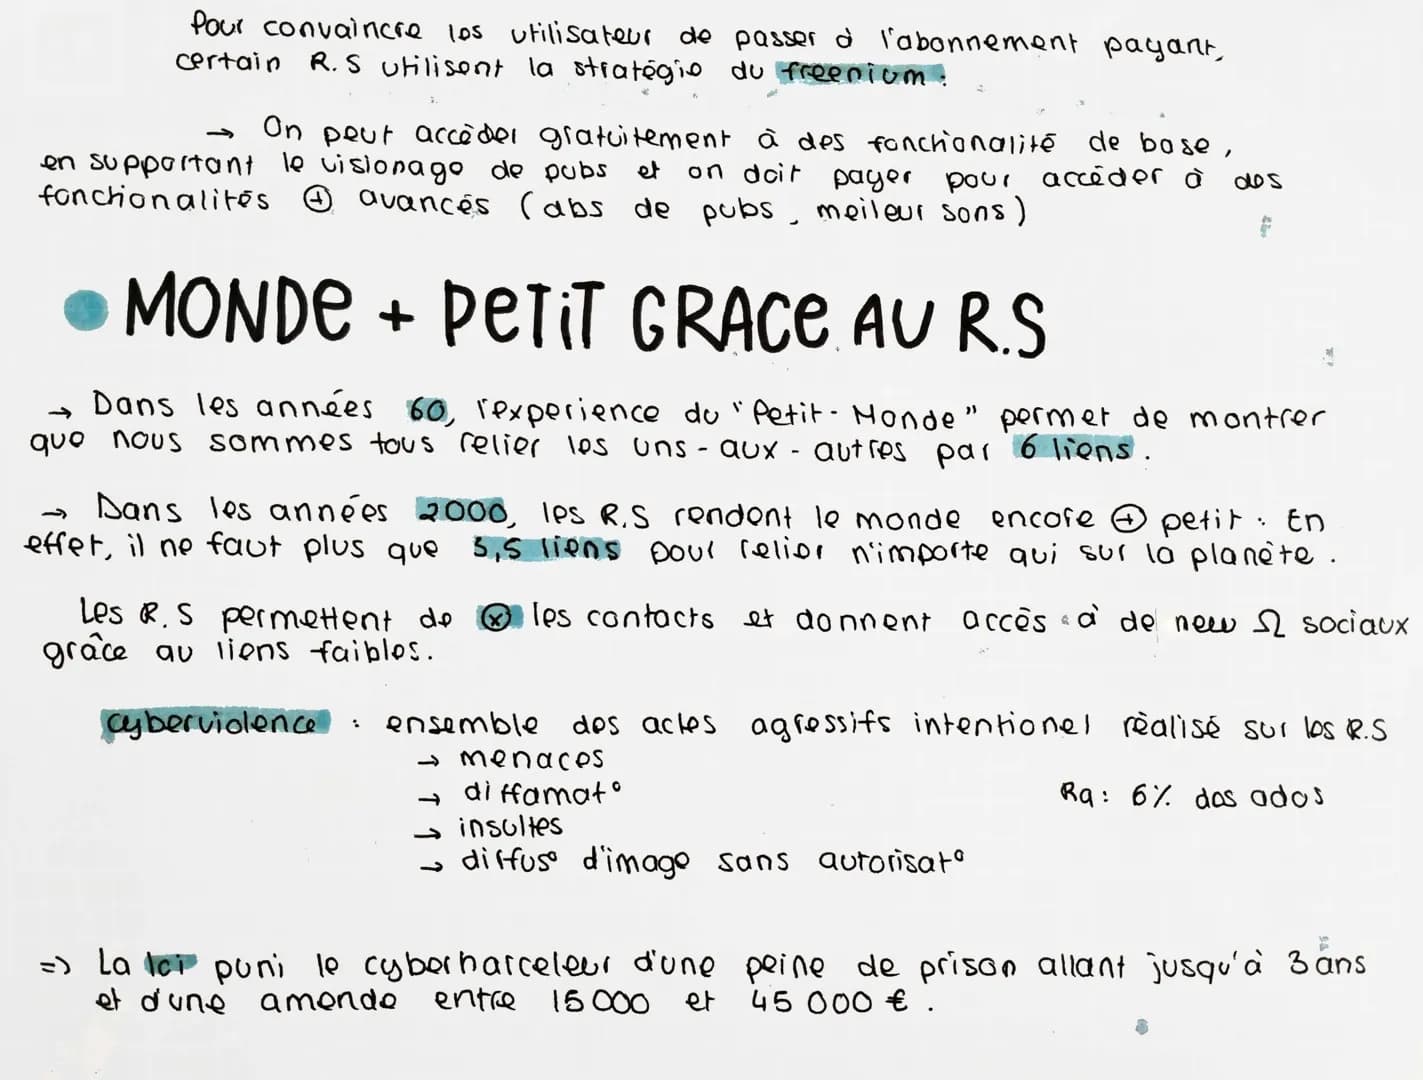 Pour convaincre les utilisateur de passer à l'abonnement payant,
certain R.S utilisent la stratégie du freenium :
→ On peut accéder gratuitement à des fonctionalité de base,
en supportant le visionage de pubs et on doit payer pour accéder à des
fonctionalités ⊕ avancés (abs de pubs, meileur sons)
• MONDE + PETIT GRACE AU R.S
→ Dans les années 60, l'experience du "Petit-Monde" permet de montrer
que nous sommes tous relier les uns-aux-autres par 6 liens.
→ Dans les années 2000, les R.S rendent le monde encore ⊕ petit : En
effet, il ne faut plus que 3,5 liens pour relier n'importe qui sur la planète.
Les R.S permettent de ⊗ les contacts et donnent accès à de new Ω sociaux
grâce au liens faibles.
cyberviolence : ensemble des actes agressifs intentionel réalisé sur les R.S
→ menaces
→ diffamat°
Rq : 6% des ados
→ insultes
→ diffus° d'image sans autorisat°
=> La loi puni le cyberharceleur d'une peine de prison allant jusqu'à 3 ans
et d'une amende entre 15 000 et 45 000 €.